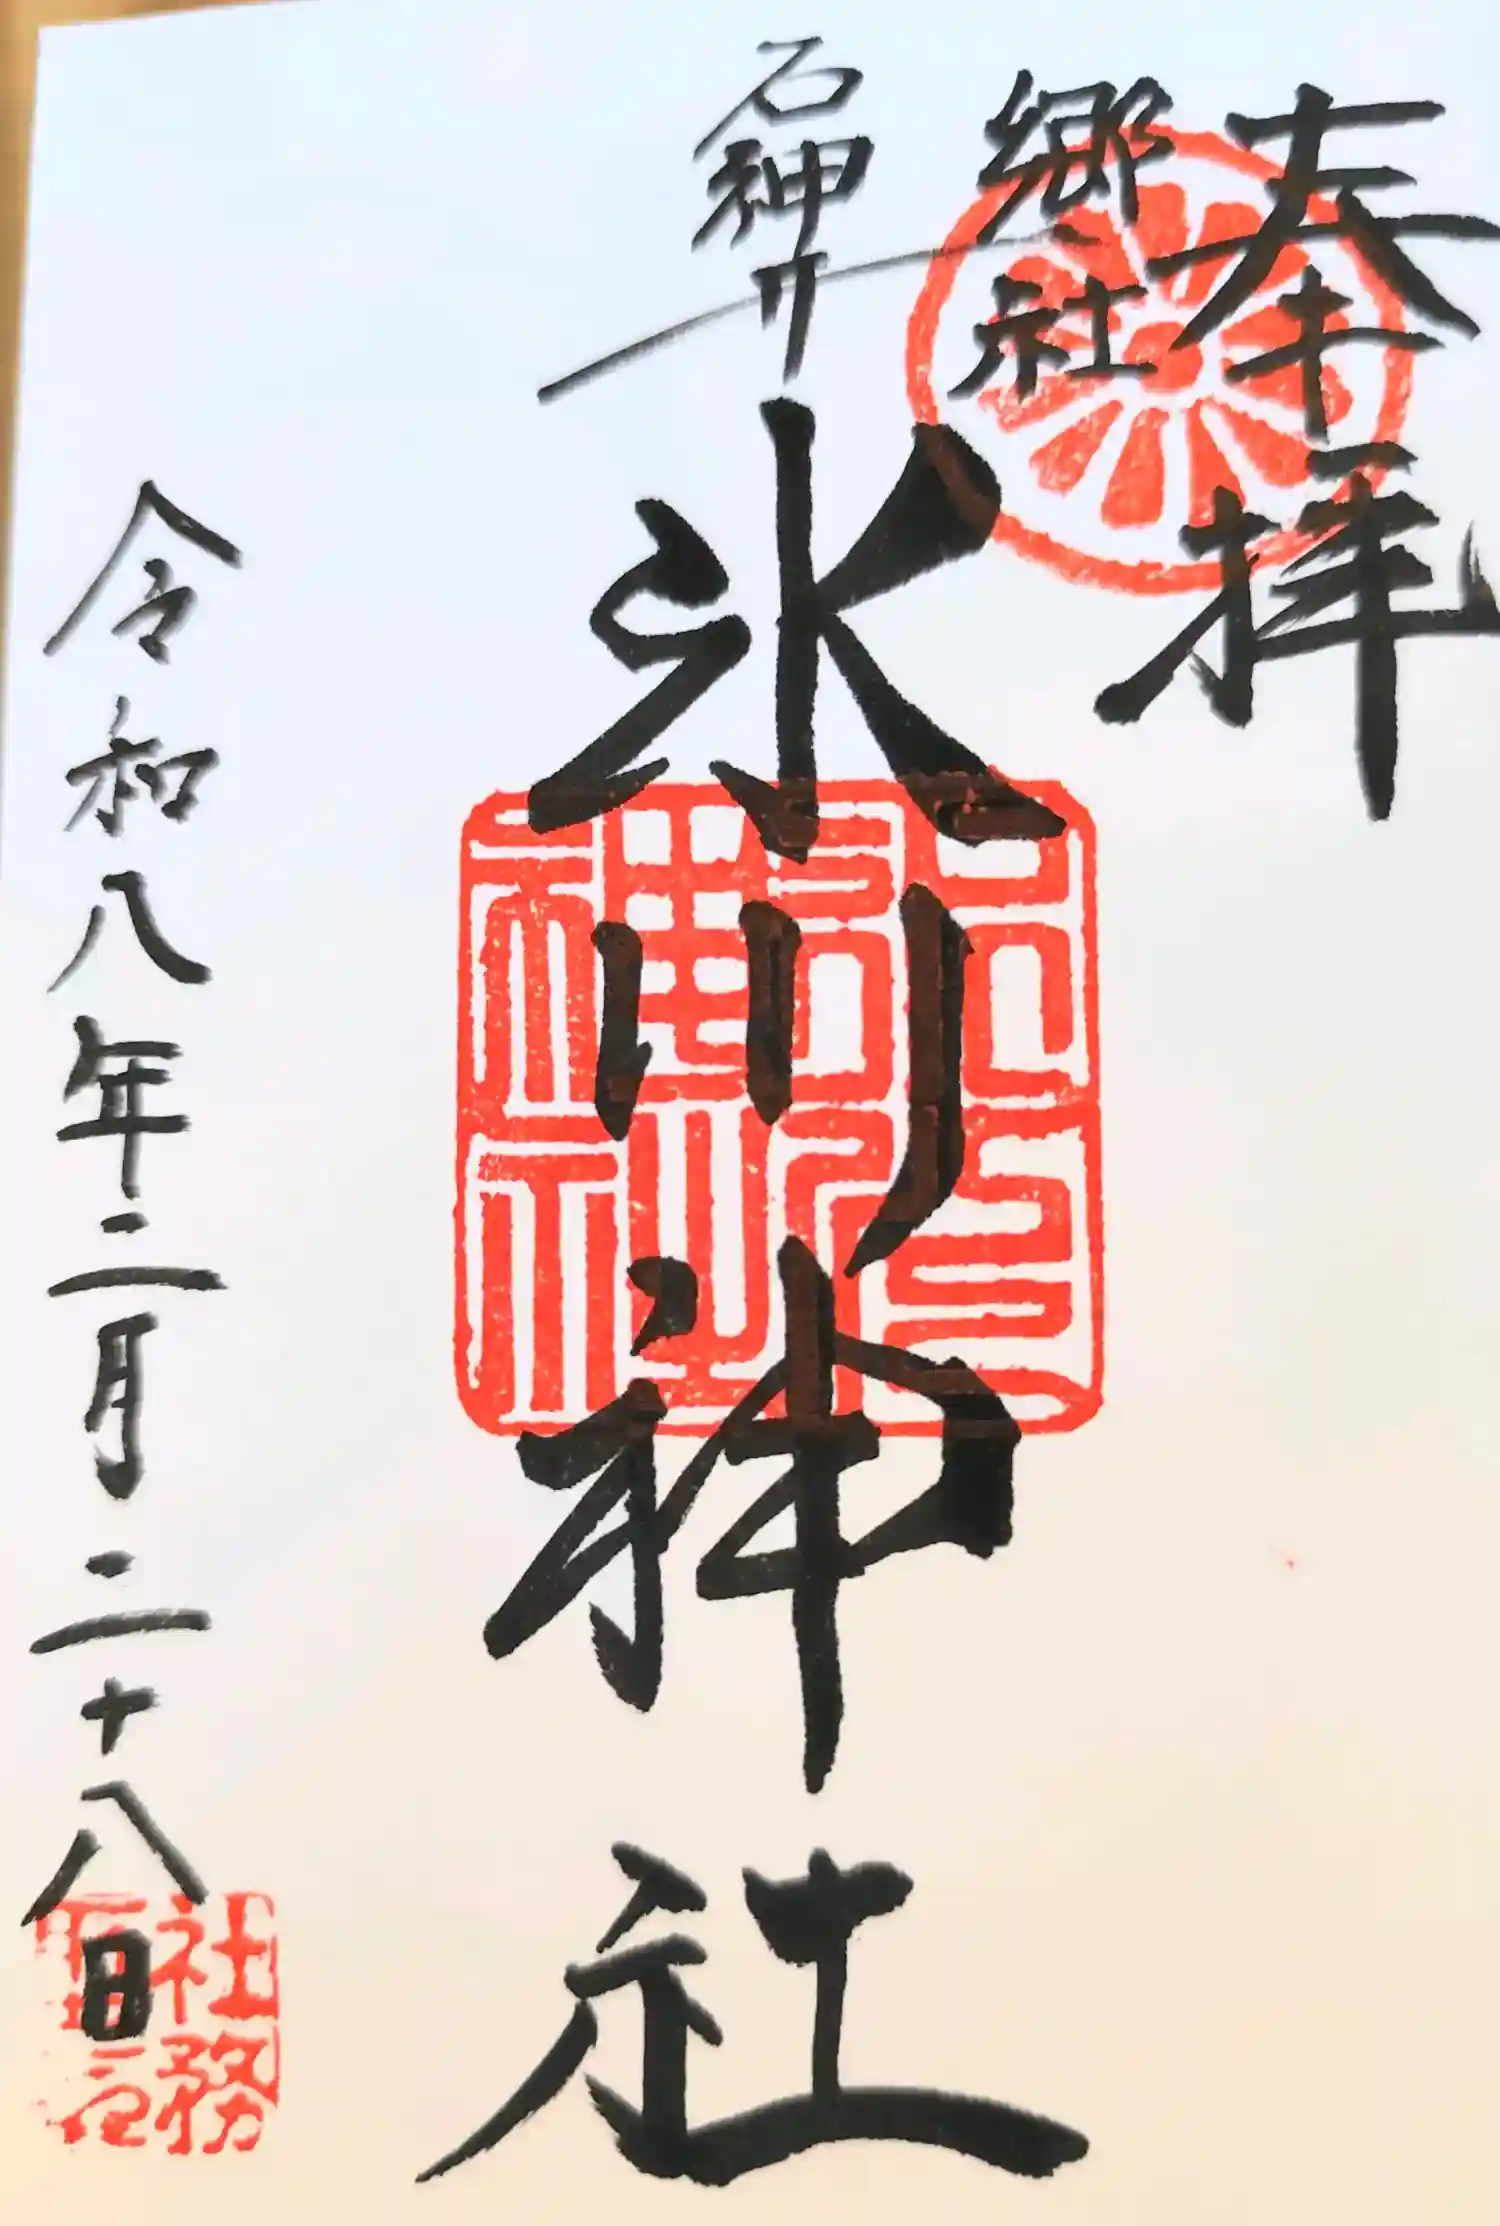 奉拝
郷社
石神井
氷川神社
令和八年二月二十八日
社務